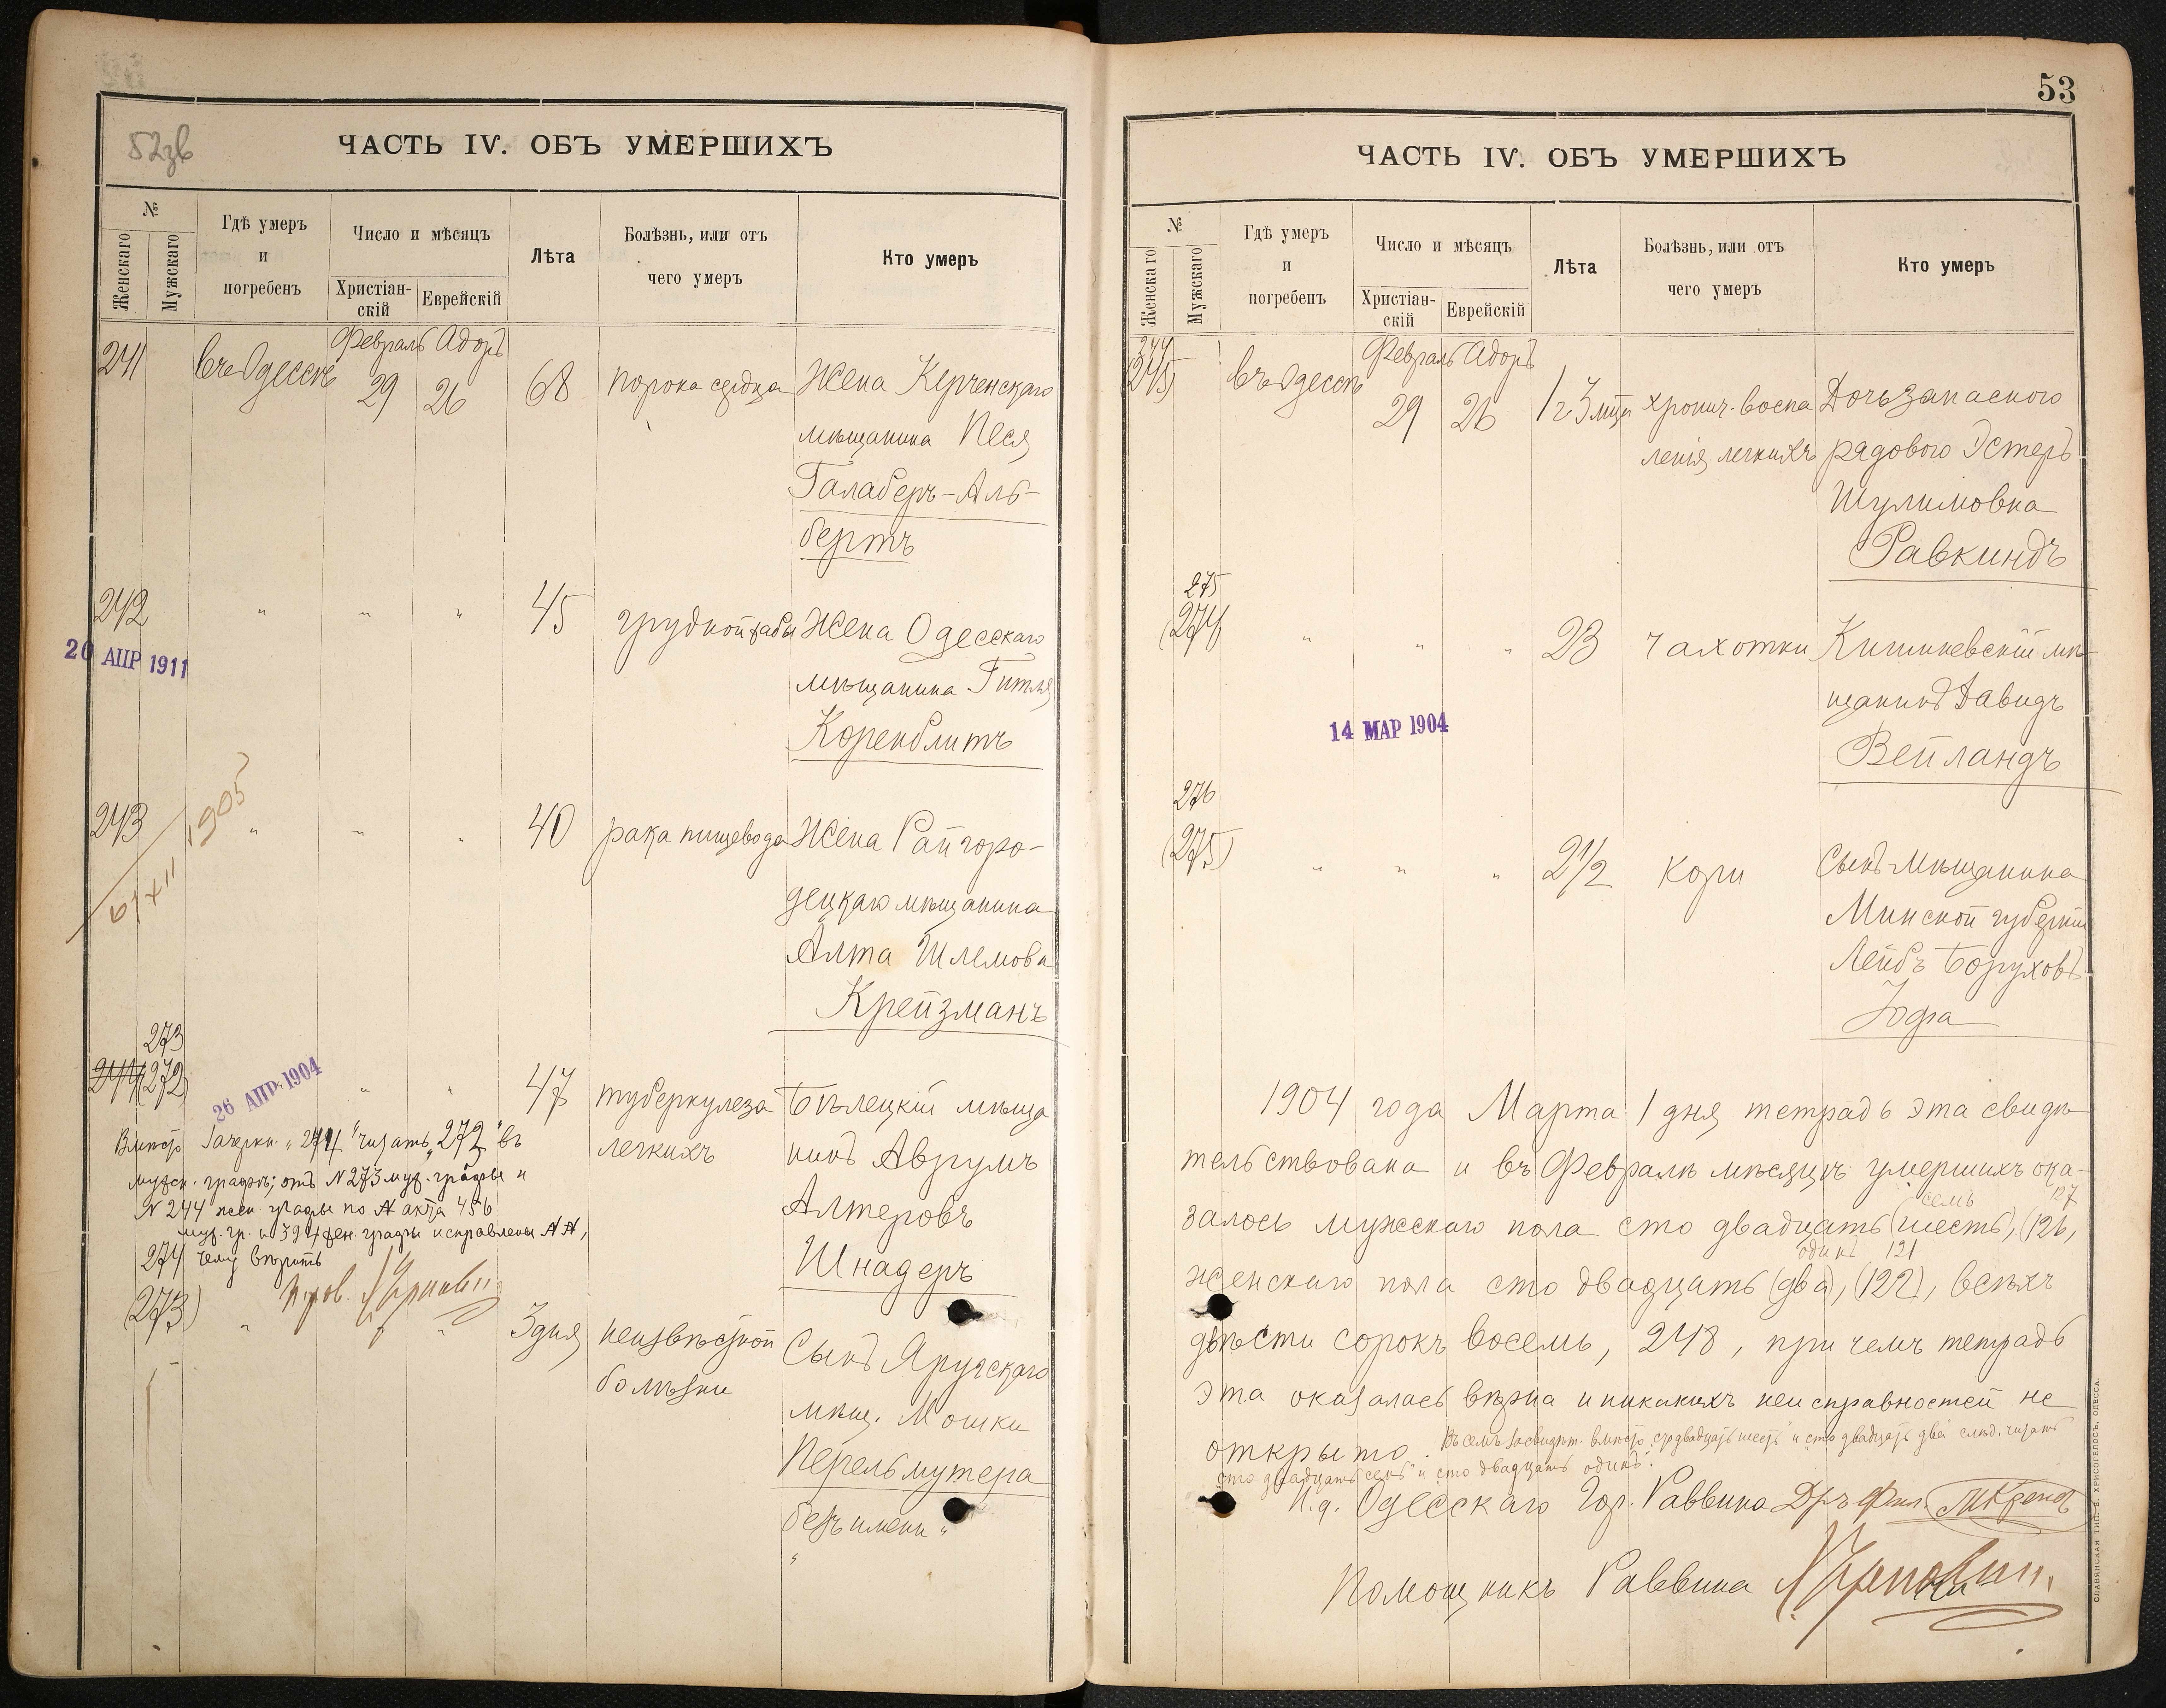 52зв
ЧАСТЬ IV. ОБЪ УМЕРШИХЪ
№
Женскаго
Мужскаго
Гдѣ умеръ
и
погребенъ
Число и мѣсяцъ
Христіан-
скій
Еврейскій
Лѣта
Болѣзнь, или отъ
чего умеръ
Кто умеръ
Февраль Адоръ
241 въ Одессѣ 29 26 68 порока сердца Жена Керченскаго
мѣщанина Песя
Галаберъ-Аль-
бертъ
242 " " " 45 грудной жабы Жена Одесскаго
20 АПР 1911
мѣщанина Гитля
Коренблитъ
243 " " " 40 рака пищевода Жена Райгоро-
6/XII 1905
децкаго мѣщанина
Алта Шлемова
Крейзманъ
273
244 (272) " " 47 туберкулеза Бѣлецкій мѣща
26 АПР 1904
легкихъ нинъ Аврумъ
Алтеровъ
Шнадеръ
Вмѣсто зачеркн. "244" читать "272" въ
мужск. графѣ; отъ N 273 муж. графы и
N 244 жен. графы по № акта 456
муж. гр. и 392 жен. графы исправлены №№,
чему вѣрить
274
(273) " " 3 дня неизвѣстной Сынъ Яругскаго
болѣзни мѣщ. Мошки
Перельмутера
безъ имени "
53
ЧАСТЬ IV. ОБЪ УМЕРШИХЪ
№
Женскаго
Мужскаго
Гдѣ умеръ
и
погребенъ
Число и мѣсяцъ
Христіан-
скій
Еврейскій
Лѣта
Болѣзнь, или отъ
чего умеръ
Кто умеръ
Февраль Адоръ
244
(245) въ Одессѣ 29 26 1 г 3 мца хронич. воспа Дочь запаснаго
ленія легкихъ рядового Эстеръ
Шулимовна
Равкиндъ
275
(274) " " " 23 чахотки Кишиневскій мѣ-
щанинъ Давидъ
14 МАР 1904
Вейландъ
276
(275) " " " 2 1/2 кори Сынъ мѣщанина
Минской губерніи
Лейбъ Боруховъ
Юфа
1904 года Марта 1 дня тетрадь эта свидѣ
тельствована и въ Февралѣ мѣсяцѣ умершихъ ока-
семь 127
залось мужскаго пола сто двадцать (шесть), (126,
одинъ 121
женскаго пола сто двадцать (два), (122), всѣхъ
двѣсти сорокъ восемь, 248, при чемъ тетрадь
эта оказалась вѣрна и никакихъ неисправностей не
открыто. Въ семъ засвидѣт. вмѣсто сто двадцать шесть и сто двадцать два слѣд. читать
сто двадцать семь и сто двадцать одинъ.
И.д. Одесскаго Гор. Раввина Дръ Фил.
Помощникъ Раввина
СЛАВЯНСКАЯ ТИП. Е. ХРИСОГЕЛОСЪ, ОДЕССА.